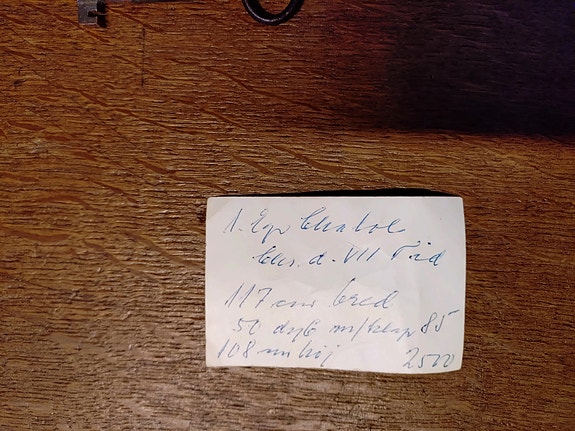 1. Eg Chatol
Chr. d. VII Tid
117 cm bred
50 dyb m/klap 85
108 cm høj 2500